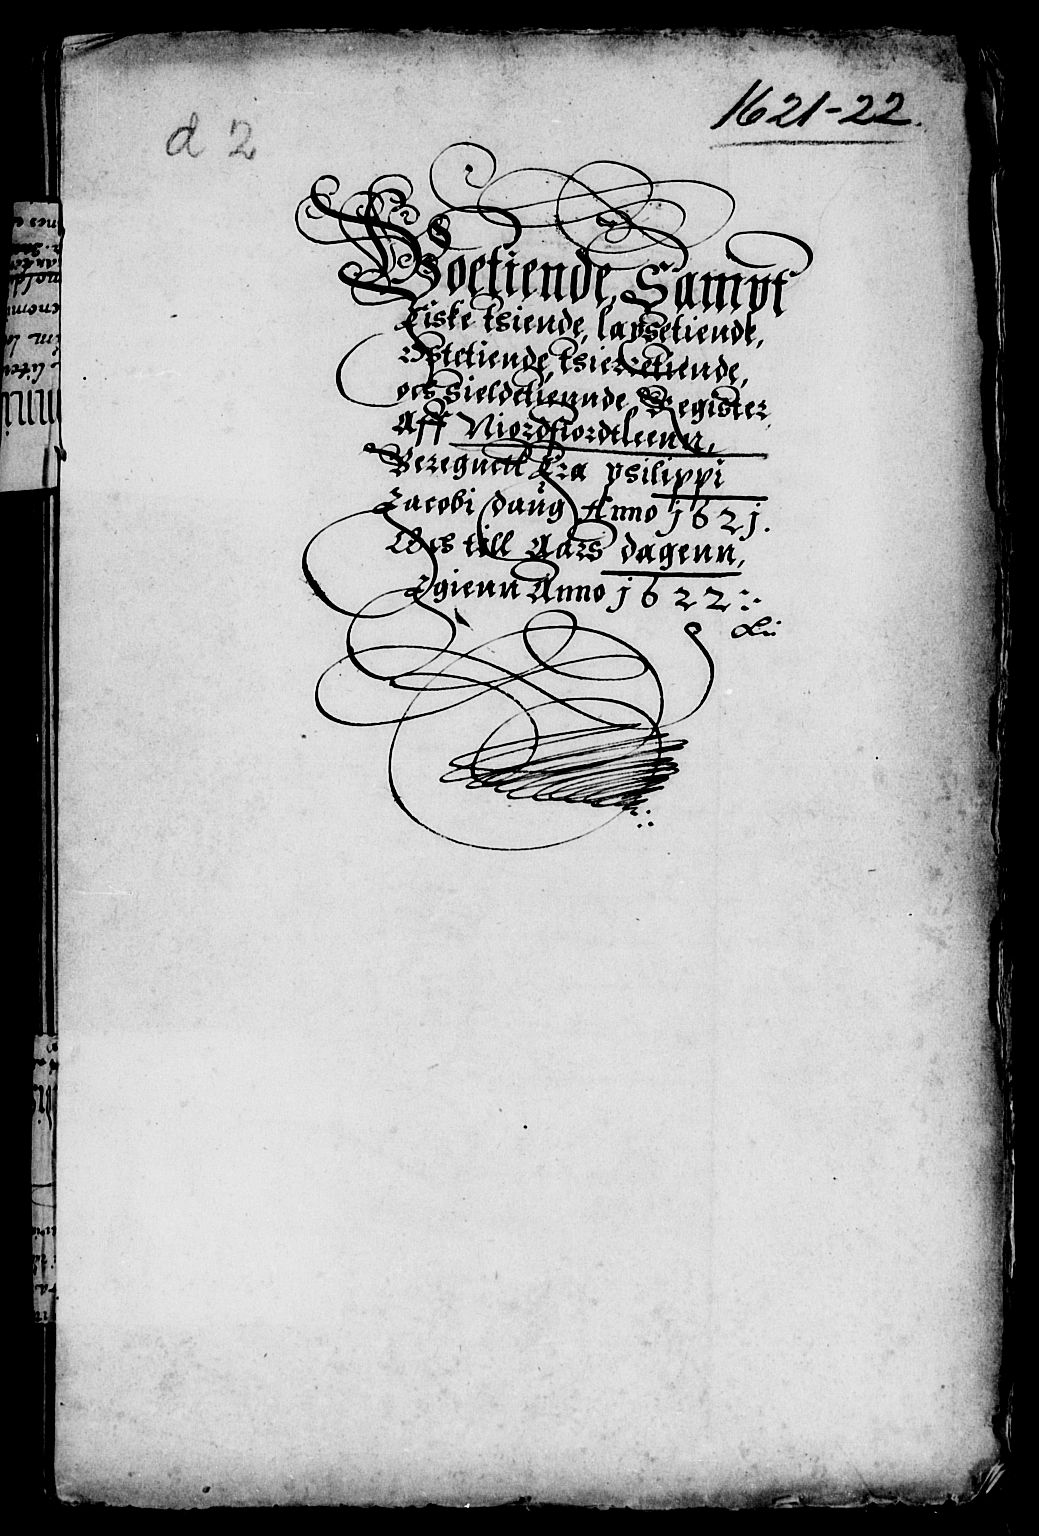 1621-22.
d 2
Koetiende, Sampt
Fiske thiende, laxsetiende,
Ostetiende, thieretiende,
och Hieldetiennde Register
Aff Niordfiordtleenn,
Beregnett Fra philippi
Jacobi daug Anno 1621.
Och till Aars dagenn,
Igienn Anno 1622